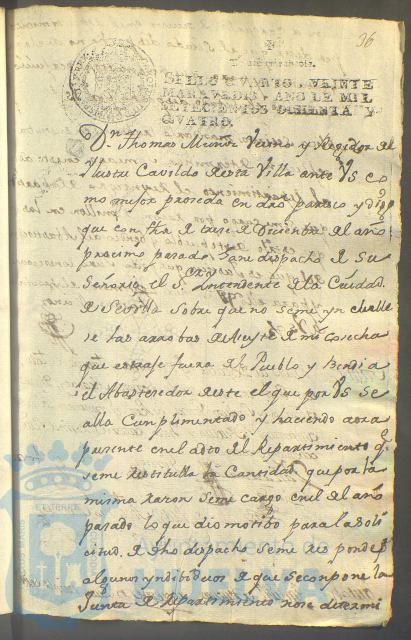 36
SELLO QVARTO, VEINTE
MARAVEDIS, AÑO DE MIL
SETECIENTOS OCHENTA Y
QVATRO.
Dn Thomas Muñoz Vecino y Regidor del
Ilustre Cavildo de esta Villa ante VS co
mo mejor proceda en dro paresco y digo
que con fha de trese de Diciembre del año
proximo pasado Gane dispacho de Su
Señoria el Sr. Intendente de la Ciudad
de Sevilla sobre que no seme yncluelle
se las arrobas de Aseyte de mi cosecha
que estraje fuera del Pueblo y bendi a
el Abastesedor de este el que por VS se
alla Cumplimentado y haciendo aora
presente en el acto del Repartimiento q.
seme restitulla la Cantidad que por la
misma rason seme cargo en el del año
pasado lo que dio motibo para la soli
citud de dho dispacho seme responde p.r
algunos yndibiduos de que se compone la
Junta de Repartimiento no se determi
Ayuntamiento de